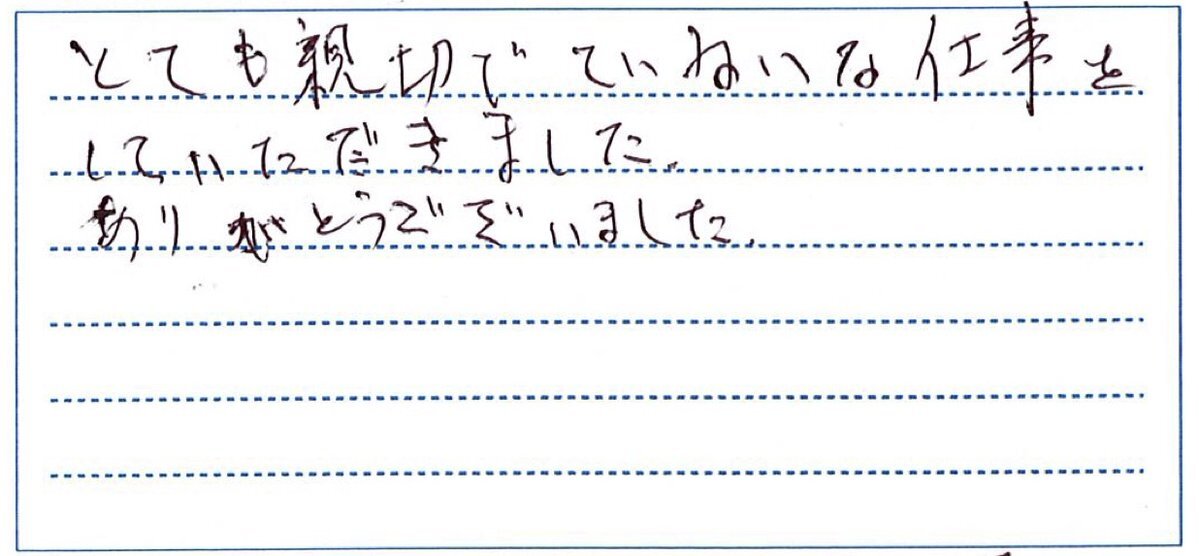 とても親切でていねいな仕事を
していただきました.
ありがとうございました.